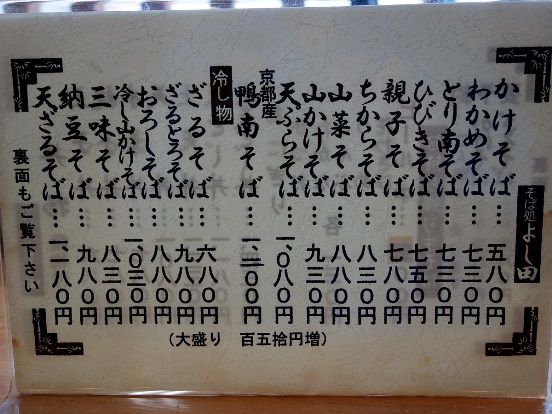 そば処 よし田
かけそば…五八〇円
わかめそば…七三〇円
とり南そば…七三〇円
ひびきそば…七五〇円
親子そば…七八〇円
ちからそば…八三〇円
山菜そば…八八〇円
山かけそば…九三〇円
天ぷらそば…一、〇八〇円
京都産
鴨南そば…一、二〇〇円
冷し物
ざるそば…六八〇円
ざるとろそば…九八〇円
おろしそば…八八〇円
冷し山かけそば…一、〇三〇円
三味そば…八三〇円
納豆そば…九八〇円
天ざるそば…一、一八〇円
裏面もご覧下さい
(大盛り 百五拾円増)